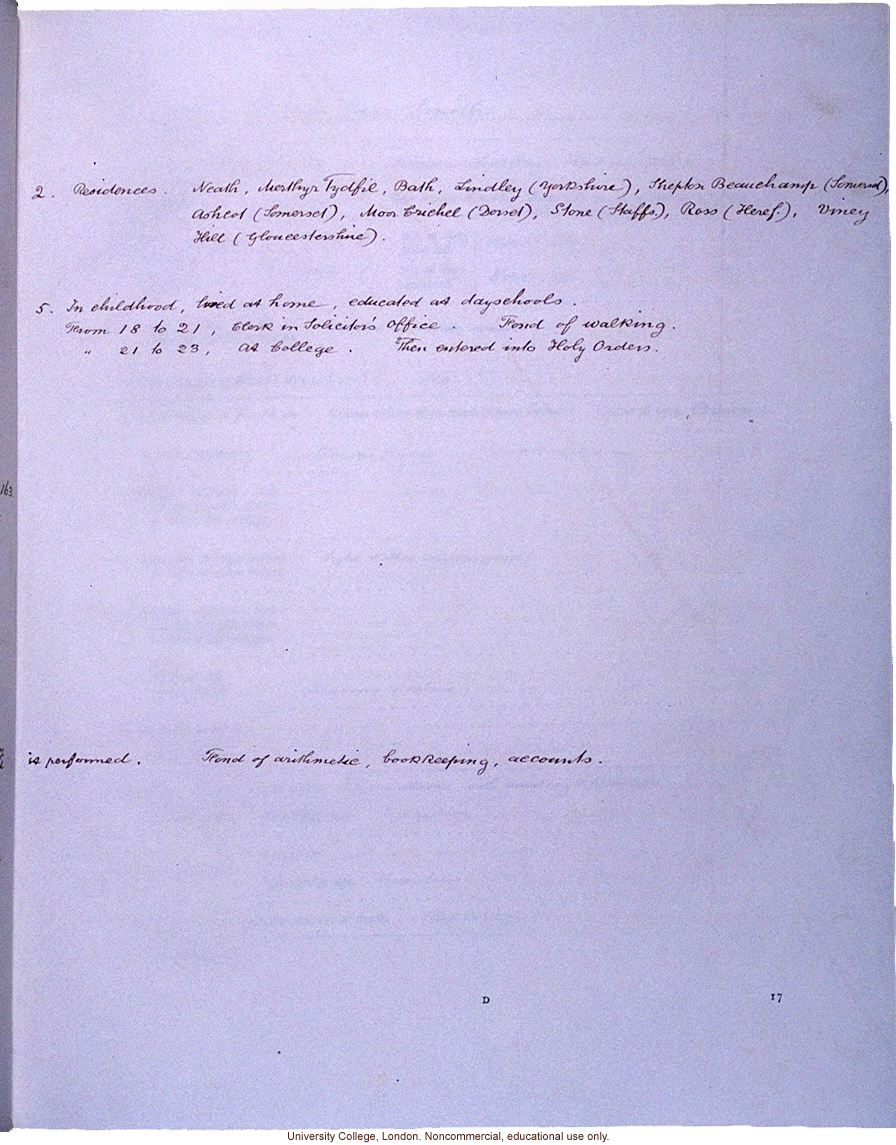 2. Residences. Neath, Merthyr Tydfil, Bath, Lindley (Yorkshire), Shepton Beauchamp (Somerset),
Ashcot (Somerset), Moor Crichel (Dorset), Stone (Staffs), Ross (Heref.), Viney
Hill (Gloucestershire).
5. In childhood, lived at home, educated at dayschools.
From 18 to 21, Clerk in Solicitor's Office. Fond of walking.
" 21 to 23, At College. Then entered into Holy Orders.
163.
is performed. Fond of arithmetic, bookkeeping, accounts.
D 17
University College, London. Noncommercial, educational use only.